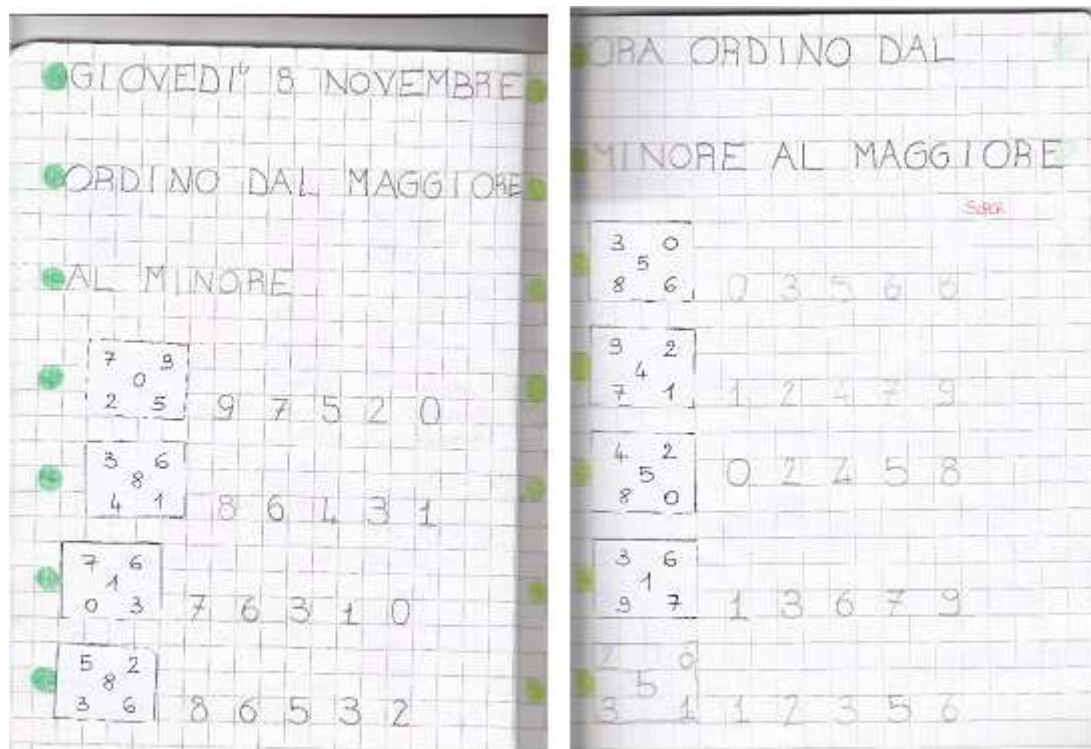 GIOVEDI' 8 NOVEMBRE
ORDINO DAL MAGGIORE
AL MINORE
7 9
0
2 5
9 7 5 2 0
3 6
8
4 1
8 6 4 3 1
7 6
1
0 3
7 6 3 1 0
5 2
8
3 6
8 6 5 3 2
ORA ORDINO DAL
MINORE AL MAGGIORE
3 0
5
8 6
0 3 5 6 8
9 2
4
7 1
1 2 4 7 9
4 2
5
8 0
0 2 4 5 8
3 6
1
9 7
1 3 6 7 9
2 6
5
3 1
1 2 3 5 6